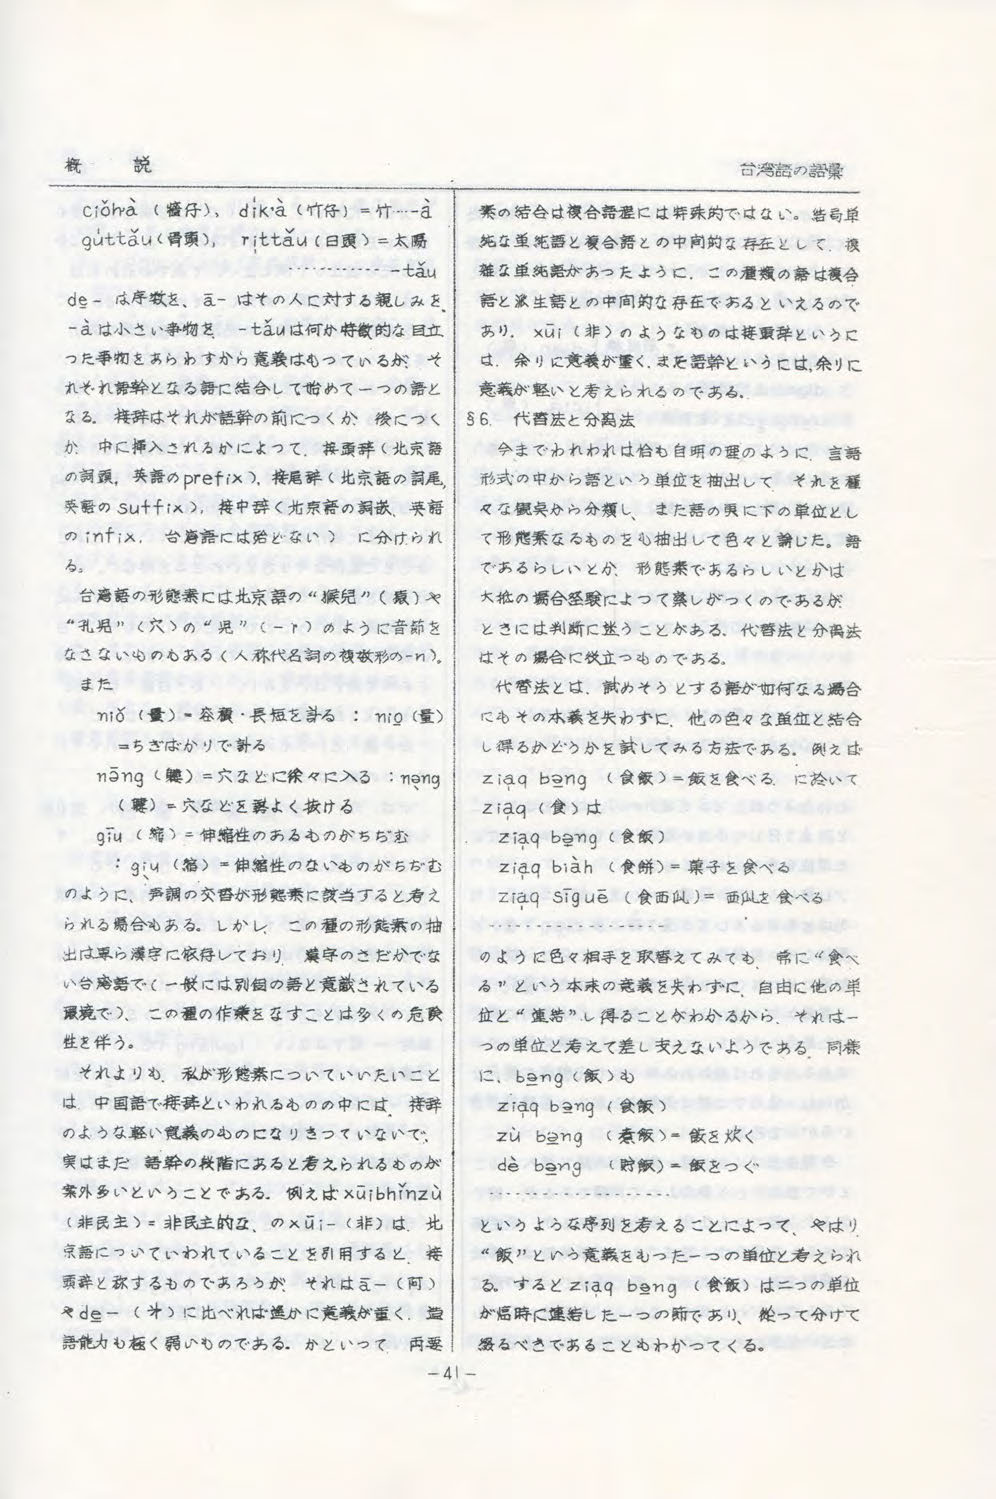 概　説
台湾語の語彙
ciǒh·à（蓆仔）、dik·à（竹仔）＝竹…-à
guttǎu（骨頭）、rittǎu（日頭）＝太陽
…………-tǎu
de- は序数を、ā- はその人に対する親しみを、
-à は小さい事物を、 -tǎuは何か特徴的な目立
つた事物をあらわすから意義はもつているが、そ
れぞれ語幹となる語に結合して始めて一つの語と
なる。接辞はそれが語幹の前につくか、後につく
か、中に挿入されるかによつて、接頭辞（北京語
の詞頭，英語のprefix）、接尾辞（北京語の詞尾，
英語のsuffix）、接中辞（北京語の詞嵌、英語
のinfix，台湾語には殆どない）に分けられ
る。
台湾語の形態素には北京語の“猴児”（猿）や
“孔児”（穴）の“児”（-r）のように音節を
なさないものもある（人称代名詞の複数形の-n）。
また
niǒ（量）＝容積・長短を計る ： nio（量）
＝ちぎばかりで計る
nāng（　）＝穴などに徐々に入る ：nang
（　）＝穴などを　よく抜ける
giu（縮）＝伸縮性のあるものがちぢむ
：giu（縮）＝伸縮性のないものがちぢむ
のように、声調の交替が形態素に該当すると考え
られる場合もある。しかし、この種の形態素の抽
出は専ら漢字に依存しており、漢字のさだかでな
い台湾語で（一般には別個の語と意識されている
環境で）、この種の作業をなすことは多くの危険
性を伴う。
それよりも、私が形態素についていいたいこと
は、中国語で接辞といわれるものの中には、接辞
のような軽い意義のものになりきつていないで、
実はまだ、語幹の段階にあると考えられるものが
案外多いということである。例えばxūibhǐnzù
（非民主）＝非民主的な、のxūi-（非）は、北
京語についていわれていることを引用すると、接
頭辞と称するものであろうが、それはā-（阿）
やde-（第）に比べれば遙かに意義が重く、造
語能力も極く弱いものである。かといつて、両要
素の結合は複合語程には特殊的ではない。結局単
純な単純語と複合語との中間的な存在として、複
雑な単純語があつたように、この種類の語は複合
語と派生語との中間的な存在であるといえるので
あり、xūi（非）のようなものは接頭辞というに
は、余りに意義が重く、また語幹というには、余りに
意義が軽いと考えられるのである。
§6. 代替法と分割法
今までわれわれは恰も自明の理のように、言語
形式の中から語という単位を抽出して、それを種
々な観点から分類し、また語の更に下の単位とし
て形態素なるものをも抽出して色々と論じた。語
であるらしいとか、形態素であるらしいとかは
大抵の場合経験によつて察しがつくのであるが、
ときには判断に迷うことがある。代替法と分割法
はその場合に役立つものである。
代替法とは、試めそうとする語が如何なる場合
にもその本義を失わずに、他の色々な単位と結合
し得るかどうかを試してみる方法である。例えば
ziaq bəng（食飯）＝飯を食べる、に於いて
ziaq（食）は
ziaq bəng（食飯）
ziaq biàh（食餅）＝菓子を食べる
ziaq Sīguē（食西瓜）＝西瓜を食べる
…………………
のように色々相手を取替えてみても、常に“食べ
る”という本来の意義を失わずに、自由に他の単
位と“連結”し得ることがわかるから、それは一
つの単位と考えて差し支えないようである。同様
に、bəng（飯）も
ziaq bəng（食飯）
zù bəng （煮飯）＝飯を炊く
dè bəng （貯飯）＝飯をつぐ
…………………
というような序列を考えることによつて、やはり
“飯”という意義をもつた一つの単位と考えられ
る。するとziaq bəng（食飯）は二つの単位
が臨時に連結した一つの節であり、従つて分けて
綴るべきであることもわかつてくる。
-41-